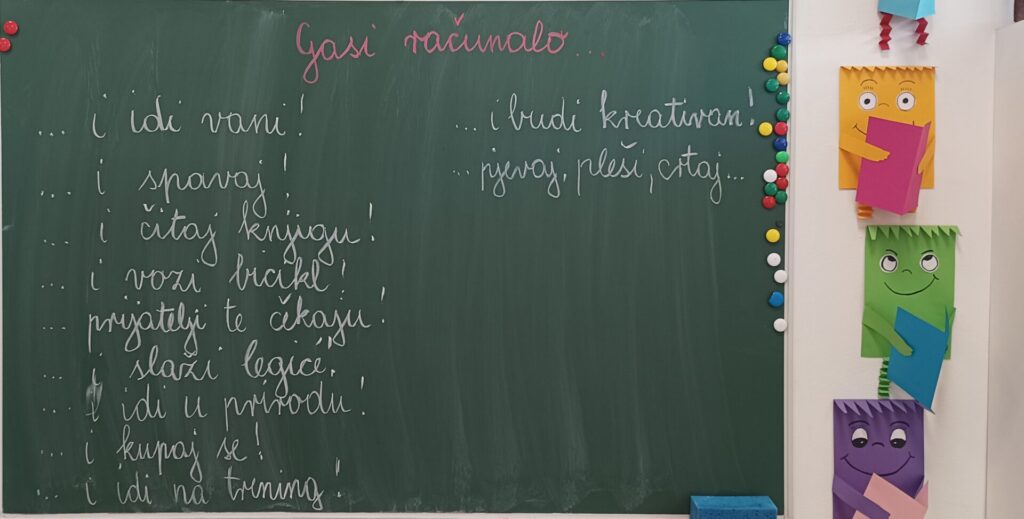 Gasi računalo...
... i idi vani!
... i spavaj!
... i čitaj knjigu!
... i vozi bicikl!
... prijatelji te čekaju!
... i slaži legiće!
... i idi u prirodu!
... i kupaj se!
... i idi na trening!
... i budi kreativan!
... pjevaj, pleši, crtaj...